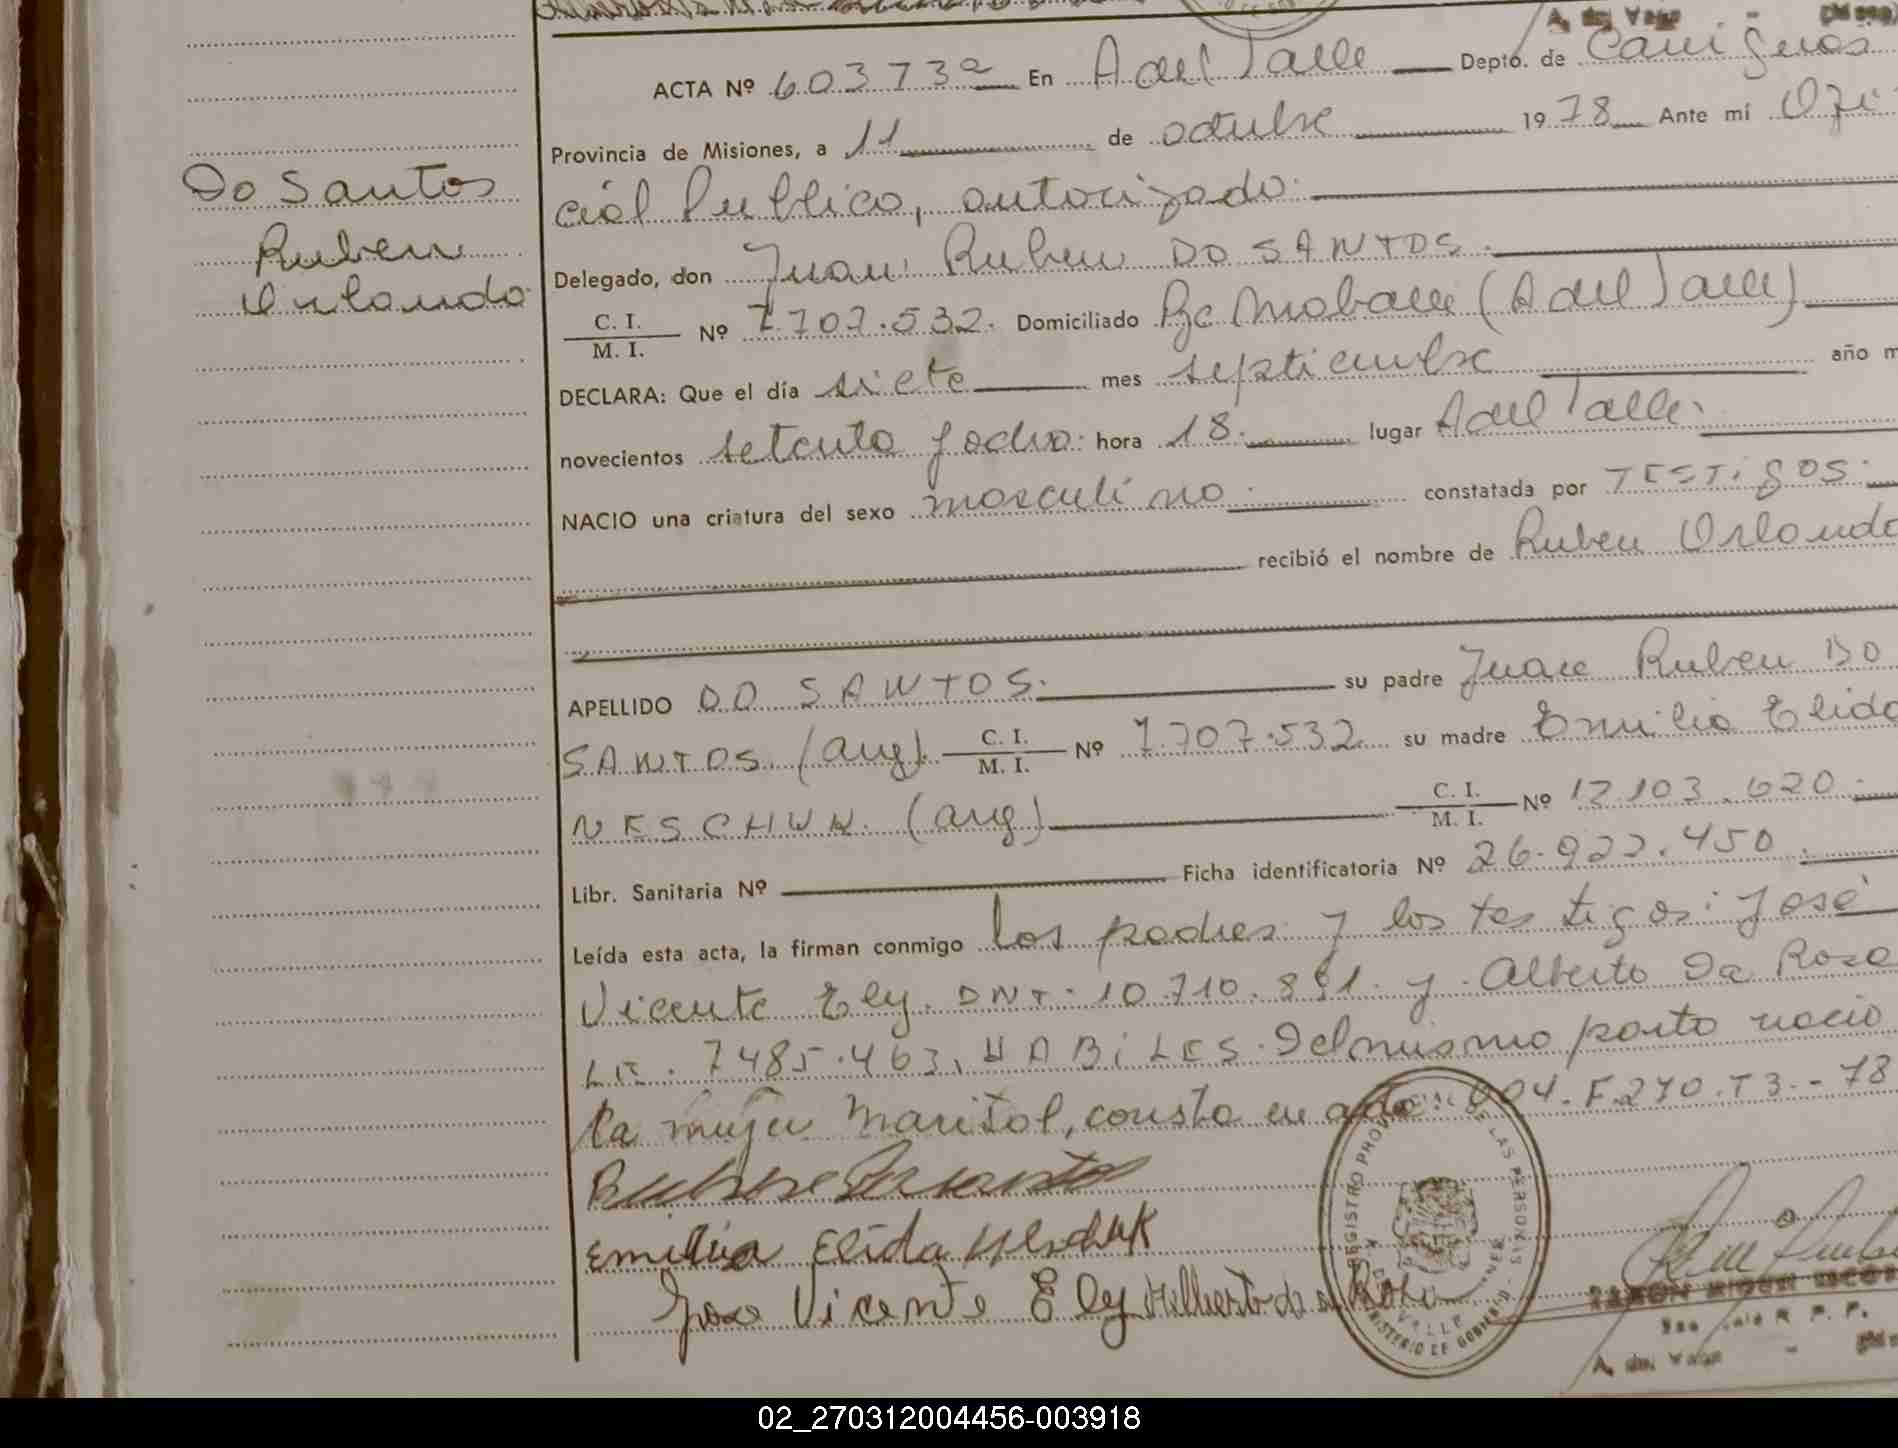 A. del Valle - (Mnes)
ACTA Nº 603732 En A del Valle Depto. de Cainguás
Provincia de Misiones, a 11 de octubre 1978 Ante mí Ofi
cial Publico, autorizado.
Do Santos
Ruben
Orlando
Delegado, don Juan Ruben DO SANTOS.
C. I.
M. I. Nº 7.707.532. Domiciliado (A del Valle)
DECLARA: Que el día siete mes septiembre año m
novecientos setenta y ocho: hora 18. lugar A del Valle.
NACIO una criatura del sexo masculino. constatada por TESTigos.
recibió el nombre de Ruben Orlando
APELLIDO DO SANTOS. su padre Juan Ruben DO
SANTOS. (arg). C. I. M. I. Nº 7.707.532 su madre Emilia Elida
NESCHUK. (arg) C. I. M. I. Nº 12.103.620.
Libr. Sanitaria Nº Ficha identificatoria Nº 26.922.450.
Leída esta acta, la firman conmigo los padres y los testigos: José
Vicente Ely. DNI. 10.710.891. y Alberto Da Rosa
LE. 7485.463, HABiLES. Del mismo parto nació
la mujer Marisol, consta en acta: 004.F.270.T3.-78
Emilia Elida Neschuk
Jose Vicente Ely Alberto da Rosa
REGISTRO PROVINCIAL DE LAS PERSONAS
MINISTERIO DE GOBIERNO
A. DEL VALLE
RAMON MIGUEL
A. del Valle - (Mnes)
02_270312004456-003918